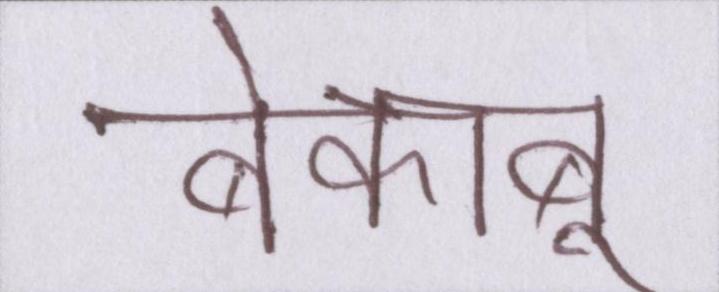 बेकाबू